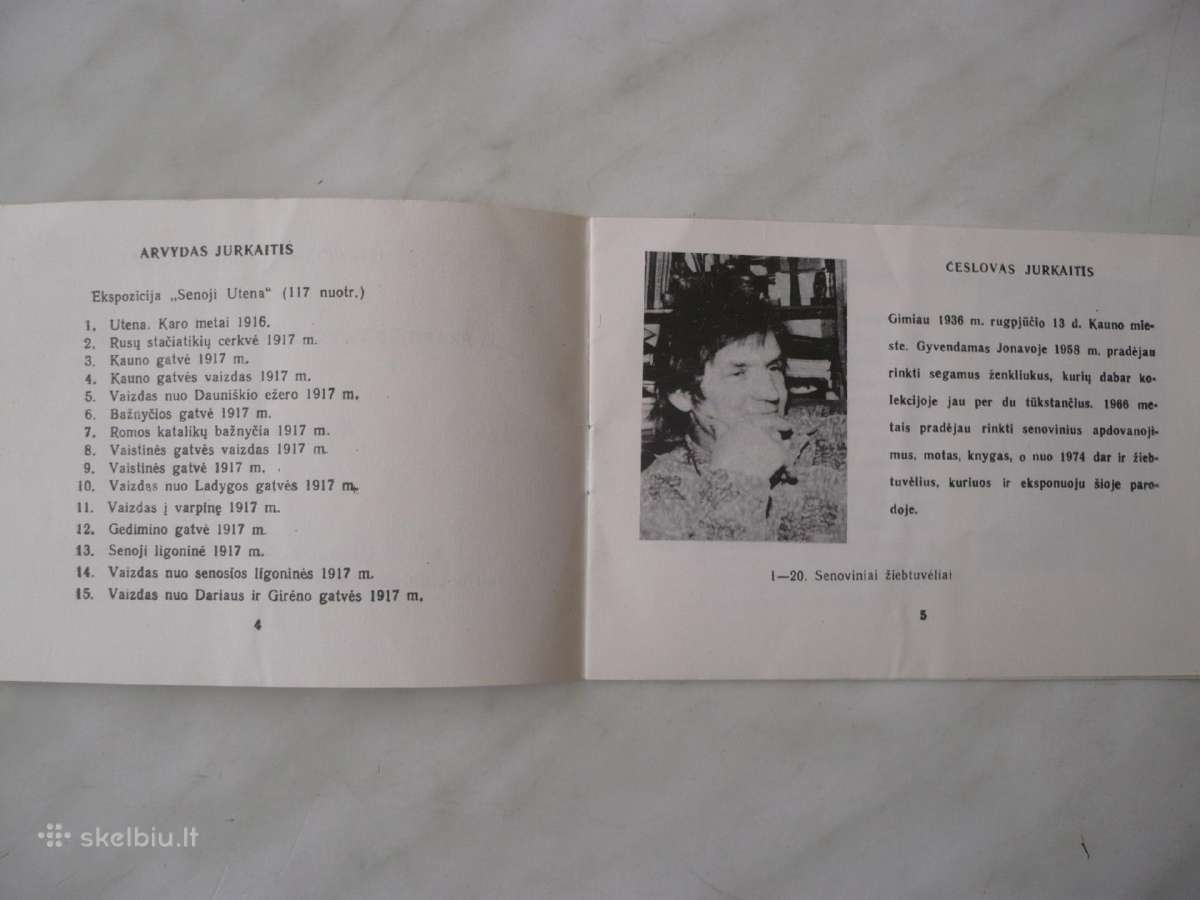 ARVYDAS JURKAITIS
Ekspozicija „Senoji Utena“ (117 nuotr.)
1. Utena. Karo metai 1916.
2. Rusų stačiatikių cerkvė 1917 m.
3. Kauno gatvė 1917 m.
4. Kauno gatvės vaizdas 1917 m.
5. Vaizdas nuo Dauniškio ežero 1917 m.
6. Bažnyčios gatvė 1917 m.
7. Romos katalikų bažnyčia 1917 m.
8. Vaistinės gatvės vaizdas 1917 m.
9. Vaistinės gatvė 1917 m.
10. Vaizdas nuo Ladygos gatvės 1917 m.
11. Vaizdas į varpinę 1917 m.
12. Gedimino gatvė 1917 m.
13. Senoji ligoninė 1917 m.
14. Vaizdas nuo senosios ligoninės 1917 m.
15. Vaizdas nuo Dariaus ir Girėno gatvės 1917 m.
4
ČESLOVAS JURKAITIS
Gimiau 1936 m. rugpjūčio 13 d. Kauno mie-
ste. Gyvendamas Jonavoje 1958 m. pradėjau
rinkti segamus ženkliukus, kurių dabar ko-
lekcijoje jau per du tūkstančius. 1966 me-
tais pradėjau rinkti senovinius apdovanoji-
mus, motas, knygas, o nuo 1974 dar ir žieb-
tuvėlius, kuriuos ir eksponuoju šioje paro-
doje.
1—20. Senoviniai žiebtuvėliai
5
skelbiu.lt